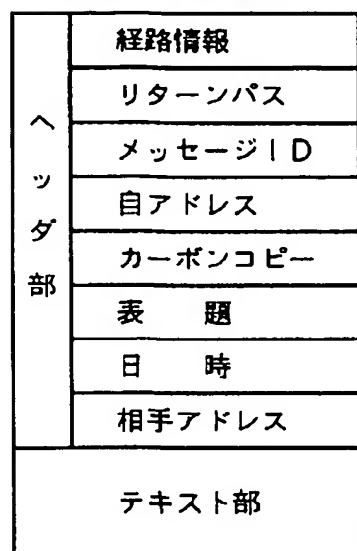 ヘッダ部
経路情報
リターンパス
メッセージID
自アドレス
カーボンコピー
表 題
日 時
相手アドレス
テキスト部